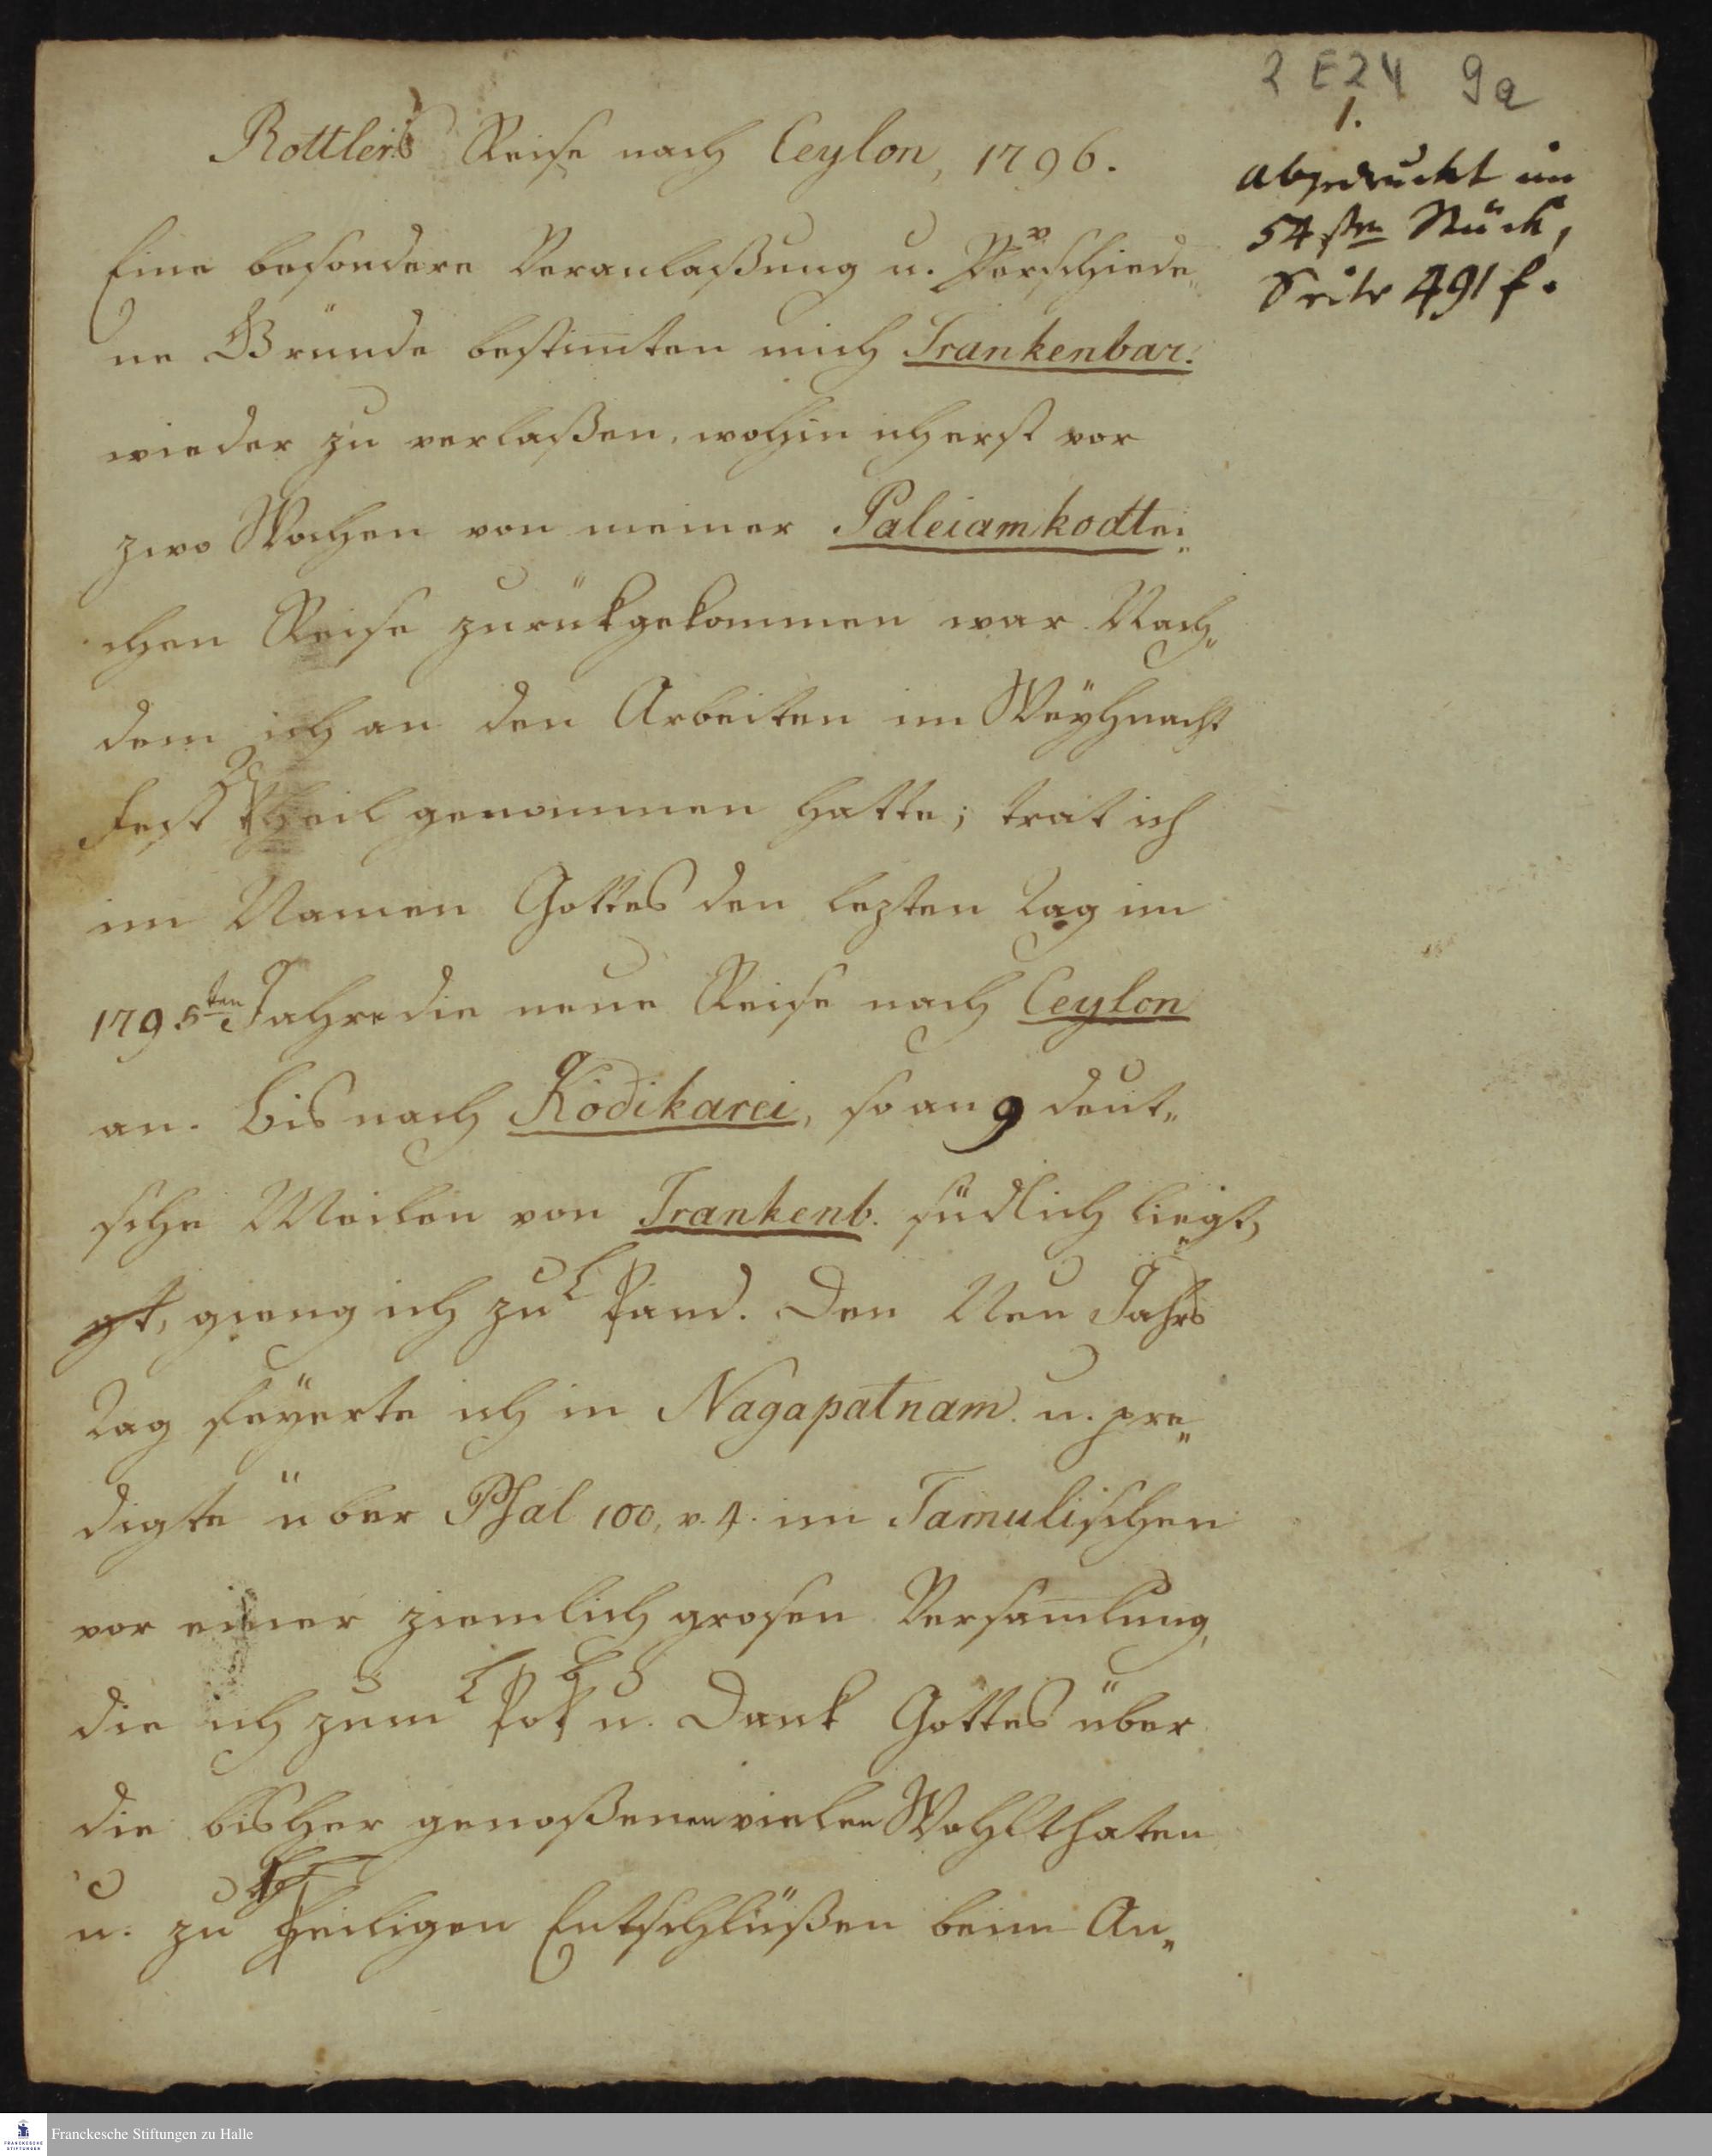 2 E24 9a
1.
Rottlers Reise nach Ceylon, 1796.
abgedruckt im
54sten Stück,
Seite 491 f.
Eine besondere Veranlaßung u. verschiede„
ne Gründe bestim̅ten mich Trankenbar.
wieder zu verlaßen, wohin ich erst vor
zwo Wochen von meiner Paleiamkodtei„
chen Reise zurükgekommen war. Nach„
dem ich an den Arbeiten im Weÿhnacht
Fest Theil genommen hatte; trat ich
im Namen Gottes den lezten Tag im
1795ten Jahre die neue Reise nach Ceylon
an. Bis nach Kodikarei, so an 9 deut„
sche Meilen von Trankenb. südlich liegt,
gt, gieng ich zu Land. Den Neu Jahrs
Tag feÿerte ich in Nagapatnam. u. pre„
digte über Psal 100, v. 4. im Tamulischen
vor einer ziemlich grosen Versam̅lung,
die ich zum Lob u. Dank Gottes über
die bisher genoßenen vielen Wohlthaten
u. zu heiligen Entschlüßen beim An„
FRANCKESCHE
STIFTUNGEN
Franckesche Stiftungen zu Halle